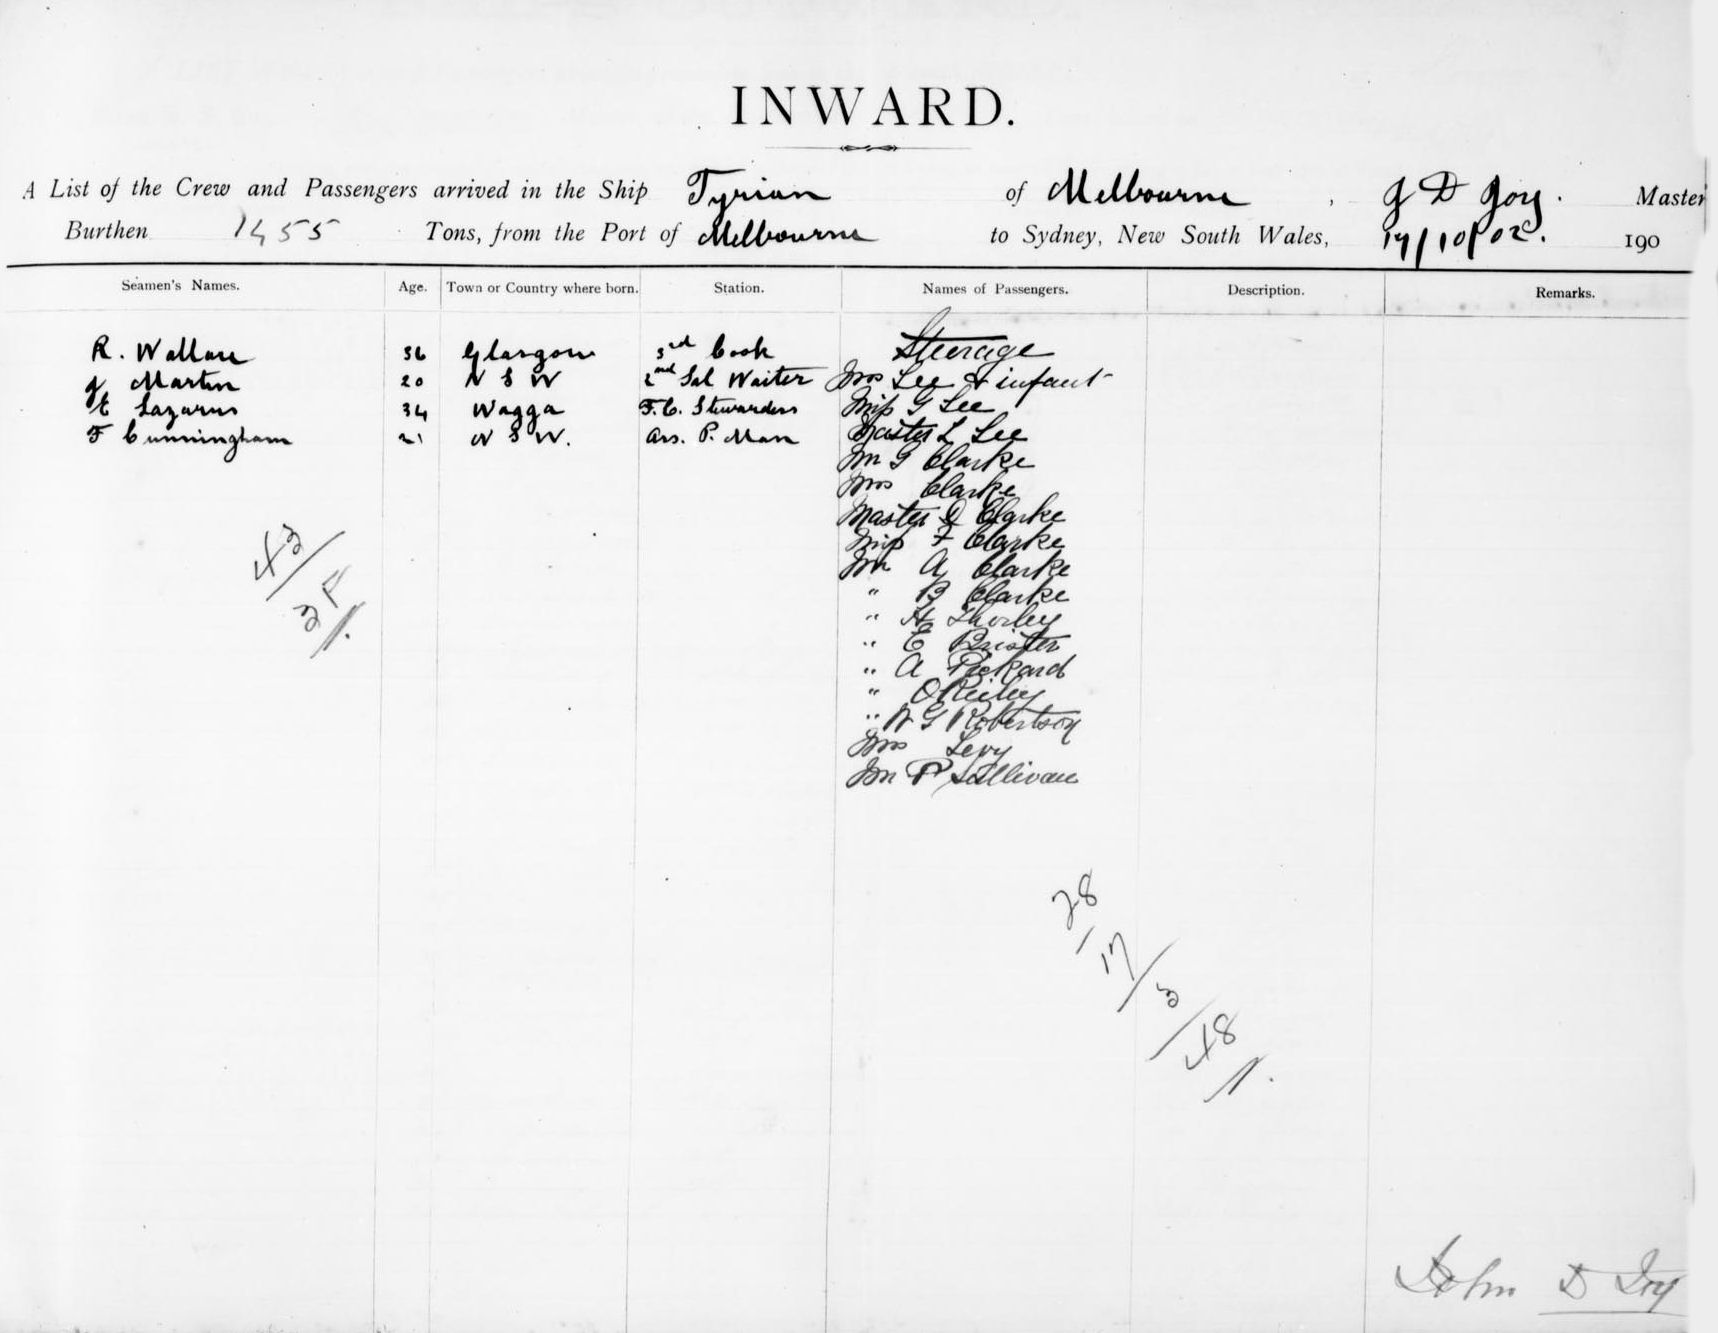 INWARD.
A List of the Crew and Passengers arrived in the Ship Tyrian of Melbourne, J D Joy. Master
Burthen 1455 Tons, from the Port of Melbourne to Sydney, New South Wales, 17/10/02. 190
Seamen's Names. Age. Town or Country where born. Station. Names of Passengers. Description. Remarks.
Steerage
R. Wallace 36 Glasgow 3rd Cook
J Martin 20 N S W 2nd Sal Waiter Mrs Lee & infant
E Lazarus 34 Wagga F.C. Stewardess Miss G Lee
F Cunningham 21 N S W. Ass. P. Man Master L Lee
Mr G Clarke
Mrs Clarke
Master Clarke
Miss F Clarke
Mr A Clarke
" B Clarke
" H Thorley
" E Brister
" A Pickard
" O'Reiley
" W G Robertson
Mrs Levy
Mr P Sullivan
43
28
17
3
48
John D Joy